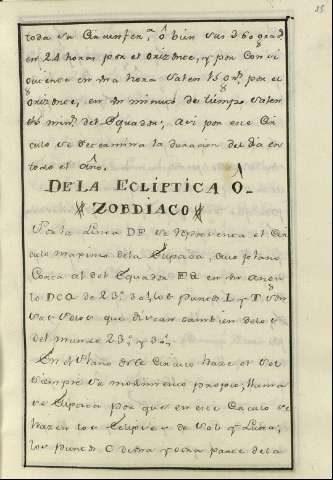 25
toda su Circunfer.ª ô bien sus 360 grad.s
en 24 horas por el orizonte, y por consi
quiente en una hora salen 15 gr.s por el
orizonte, en un minuto de tiempo salen
15 min.s del Equador, Asi por este Cir
culo se determina la duracion del dia en
todo el año.
DE LA ECLÍPTICA Ô-
ZOBDIACO
Por la Linea DF se representa el Cir
culo maximo de la Esphera, cuio plano
Corta al del Equador EQ en un Angu
lo DCQ de 23.º 30', los puntos L y T son
los Polos que distan tambien de los
del mundo 23.º y 30'.
En el Plano de este Circulo hace el Sol
siempre su movimiento propio, llama
se Ecliptica por que en este Circulo se
hacen los Eclipses de Sol y Luna;
los puntos o una y otra parte de la